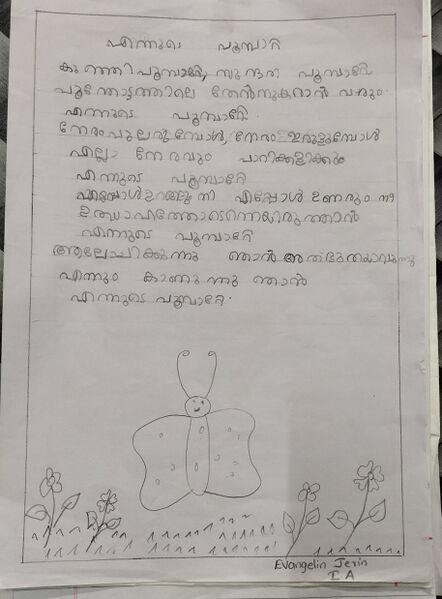 എന്നുടെ പൂമ്പാറ്റ
കുഞ്ഞിപൂമ്പാറ്റേ, സുന്ദരി പൂമ്പാറ്റേ
പൂന്തോട്ടത്തിലെ തേൻനുകരാൻ വരും
എന്നുടെ പൂമ്പാറ്റേ.
നേരംപുലരുമ്പോൾ, നേരംഇരുളുമ്പോൾ
എല്ലാ നേരവും പാറിക്കളിക്കും
എന്നുടെ പൂമ്പാറ്റേ
എപ്പോൾഉറങ്ങും നീ എപ്പോൾ ഉണരും നീ
എന്നുടെ പൂമ്പാറ്റേ
ആലോചിക്കുന്നു ഞാൻ
എന്നും കാണുന്നു ഞാൻ
എന്നുടെ പൂമ്പാറ്റേ.
Evangelin Jerin
I A